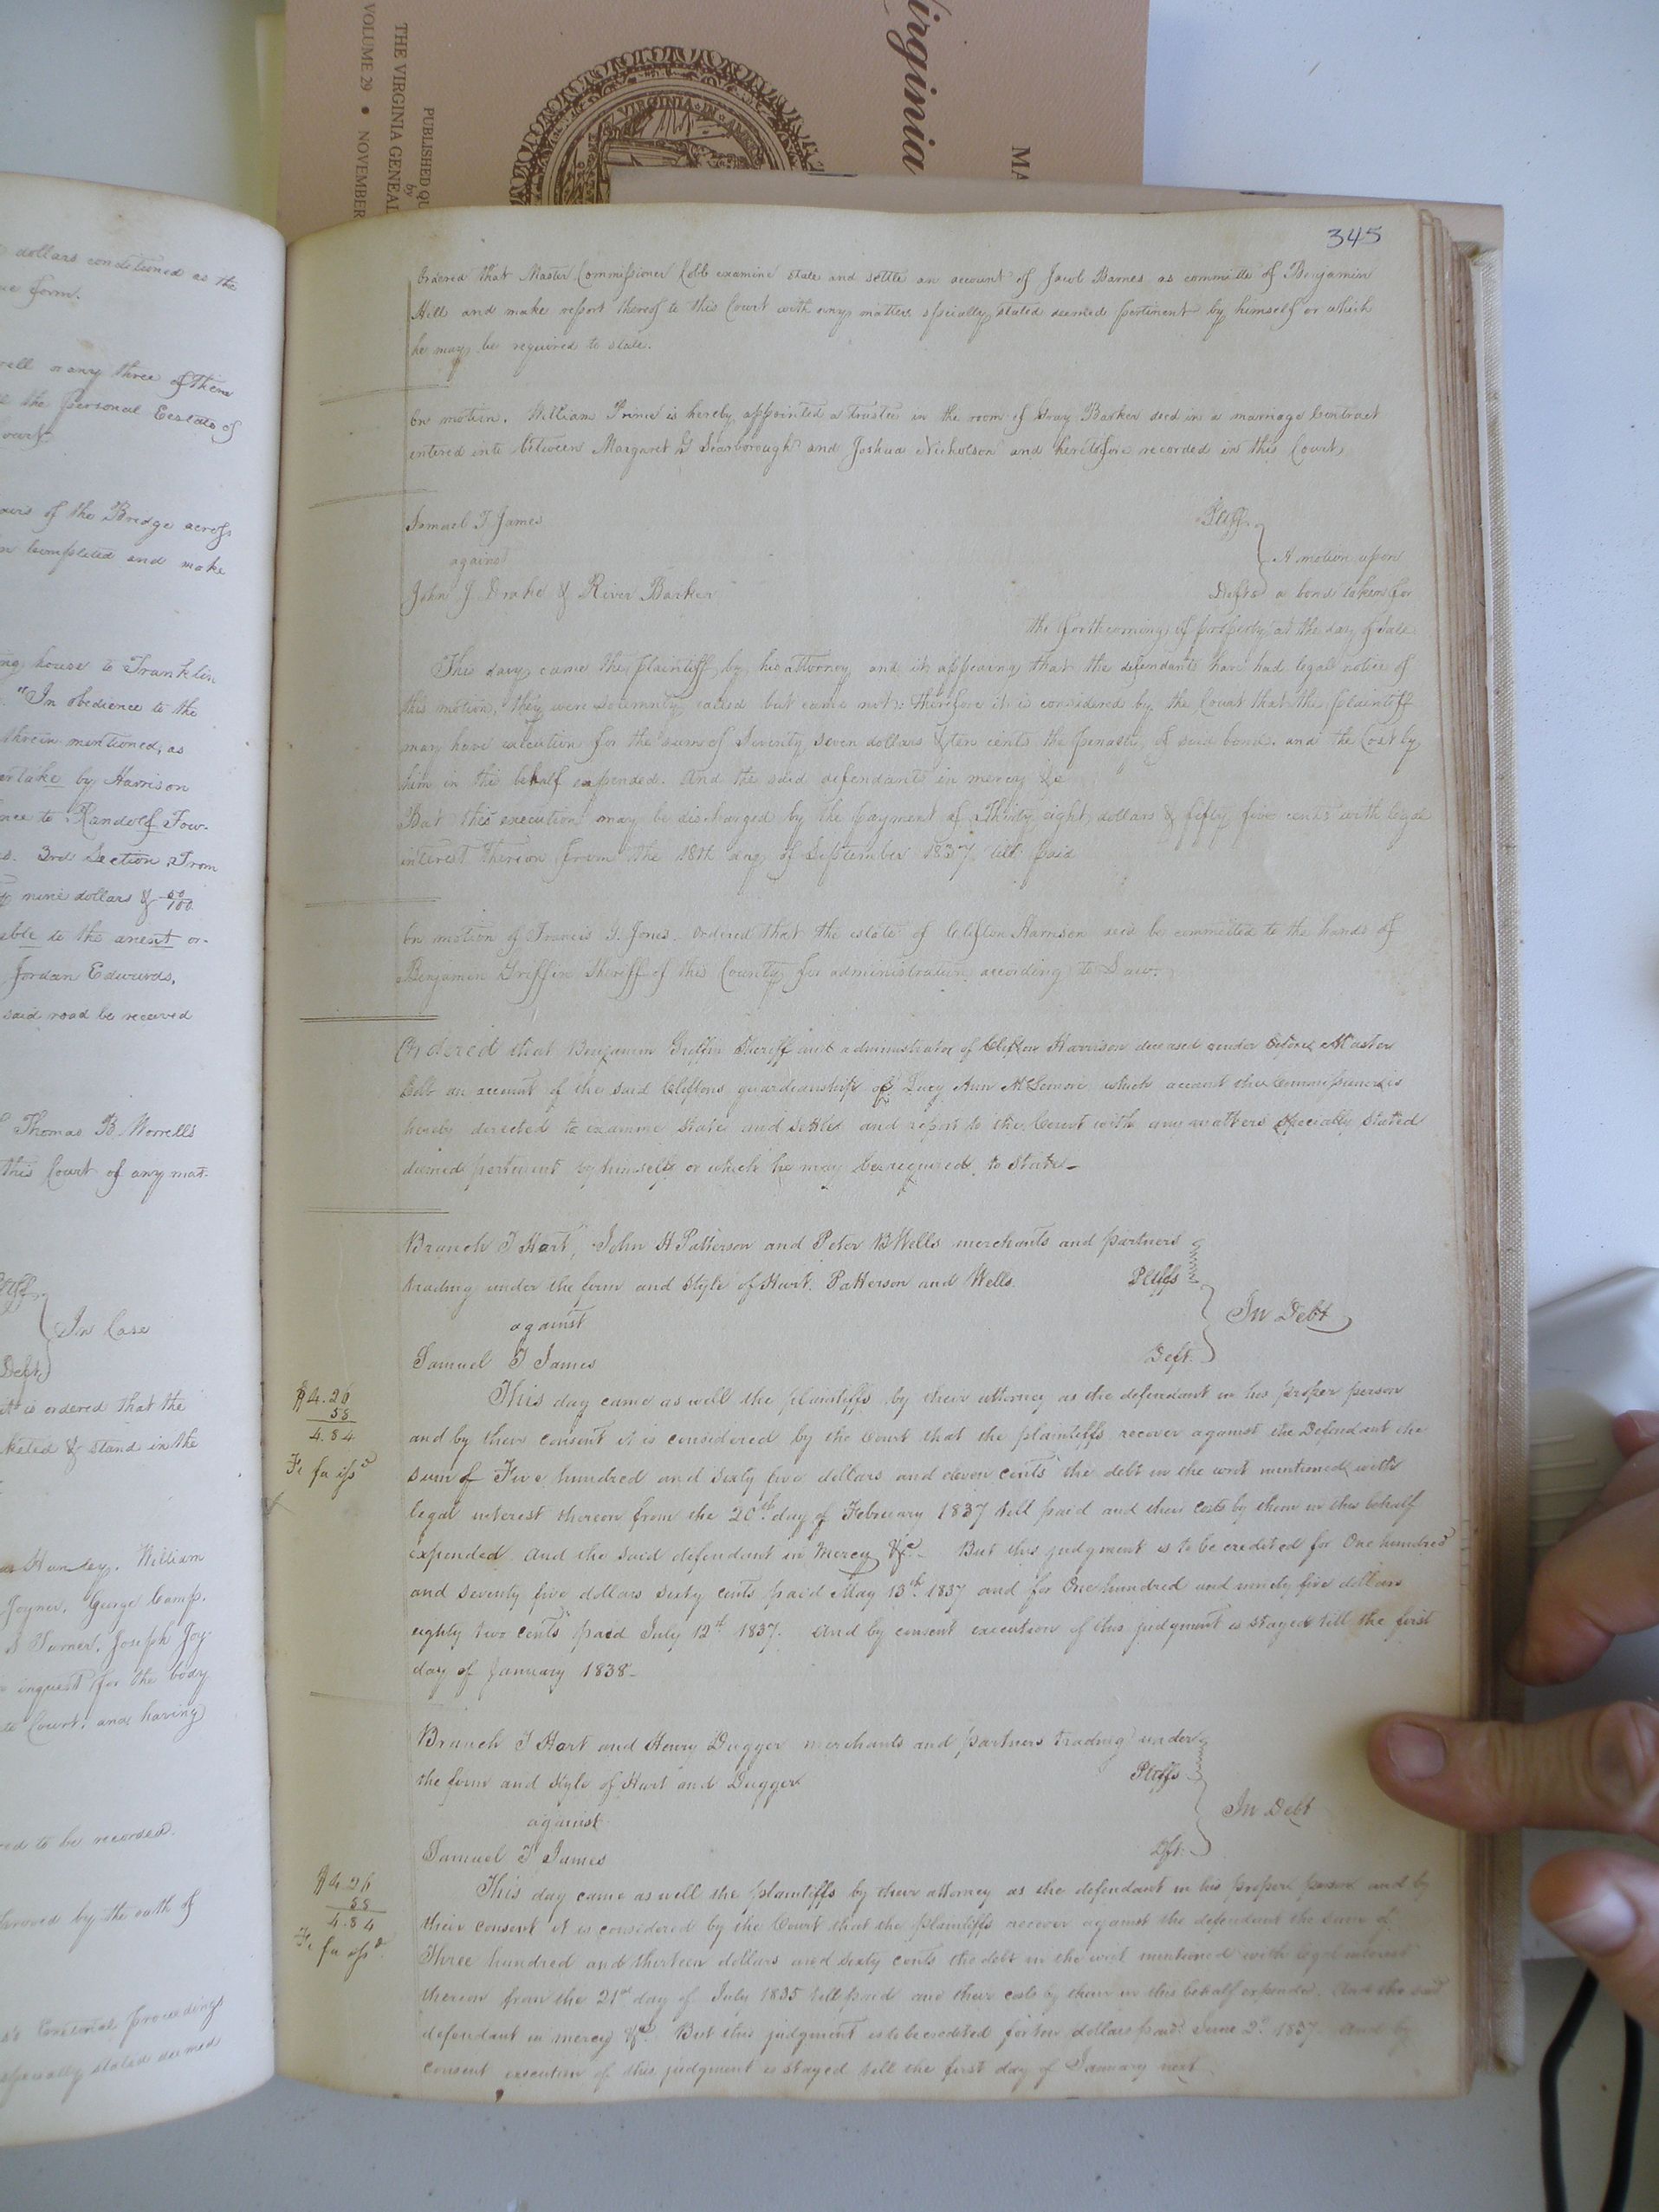 Virginia
MA
PUBLISHED QU
by
THE VIRGINIA GENEAL
VOLUME 29 • NOVEMBER
VIRGINIA IN AM
dollars conditioned as the
form.
or any three of them
the personal Eestate of
Court
of the Bridge across
completed and make
house to Franklin
"In obedience to the
mentioned, as
by Harrison
to Randolf Fow-
3rd Section From
nine dollars & 50/100
to the arent or-
Jordan Edwards,
said road be received
Thomas B. Worrells
this Court of any mat-
In Case
Deft
it is ordered that the
& stand in the
William
Joyner, George Camp,
Turner, Joseph Joy-
inquest for the body
Court, and having
to be recorded.
by the oath of
proceedings
specially stated deemed
345
Ordered that Master Commissioner Cobb examine state and settle an account of Jacob Barnes as committe of Benjamin
Hill and make report thereof to this Court with any matters specially stated deemed pertinent by himself or which
he may be required to state.
On motion. William Prince is hereby appointed a trustee in the room of Gray Barker decd in a marriage Contract
entered into between Margaret G Scarborough and Joshua Nicholson and heretofore recorded in this Court,
Samuel T James Pltff
against A motion upon
John J. Drake & River Barker Defts a bond taken for
the forthcoming of property at the day of sale
This day came the plaintiff by his attorney and it appearing that the defendants have had legal notice of
this motion, they were solemnly called but came not: therefore it is considered by the Court that the plaintiff
may have execution for the sum of Seventy seven dollars & ten cents the penalty of said bond. and the Cost by
him in this behalf expended. And the said defendants in mercy &c
But this execution may be discharged by the payment of Thirty eight dollars & fifty five cents with legal
interest thereon from the 18th day of September 1837 till paid
On motion of Francis G. Jones. Ordered that the estate of Clifton Harrison decd be committed to the hands of
Benjamin Griffin Sheriff of this County for administration according to Law.
Ordered that Benjamin Griffin Sheriff and administrator of Clifton Harrison deceased render before Master
Cobb an account of the said Cliftons guardianship of Lucy Ann McLemore which account the Commissioner is
hereby directed to examine state and settle and report to the Court with any matters specially stated
deemed pertinent by himself or which he may be required to state_
Branch T Hart, John H Patterson and Peter B Wells merchants and partners
trading under the firm and style of Hart, Patterson and Wells. Pltffs
against In Debt
Samuel T James Deft.
$4.26
58
4.84
Fi fa issd
This day came as well the plaintiffs by their attorney as the defendant in his proper person
and by their consent it is considered by the Court that the plaintiffs recover against the Defendant the
sum of Five hundred and sixty five dollars and eleven cents the debt in the writ mentioned with
legal interest thereon from the 20th day of February 1837 till paid and their costs by them in this behalf
expended. And the said defendant in Mercy &c. But this judgment is to be credited for One hundred
and seventy five dollars sixty cents paid May 13th 1837 and for One hundred and ninety five dollars
eighty two cents paid July 12th 1837. And by consent execution of this judgment is stayed till the first
day of January 1838_
Branch T Hart and Henry Dugger merchants and partners trading under
the firm and style of Hart and Dugger Pltffs
against In Debt
Samuel T James Dft.
$4.26
58
4.84
Fi fa issd
This day came as well the plaintiffs by their attorney as the defendant in his proper person and by
their consent it is considered by the Court that the plaintiffs recover against the defendant the sum of
Three hundred and thirteen dollars and sixty cents the debt in the writ mentioned with legal interest
thereon from the 21st day of July 1835 till paid and their costs by them in this behalf expended. And the said
defendant in mercy &c. But this judgment is to be credited for ten dollars paid June 2d 1837. And by
consent execution of this judgment is stayed till the first day of January next